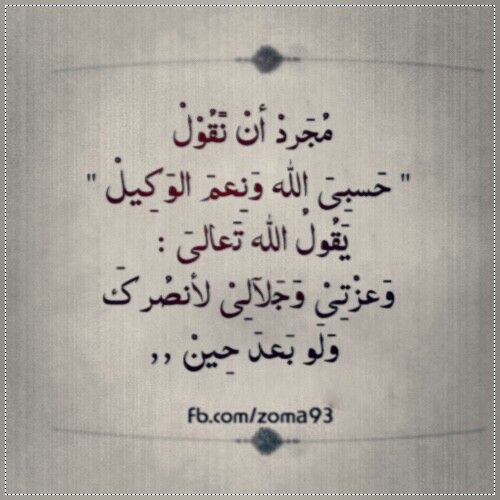 مُجَردْ أنْ نَّقُوْلْ
" حَسبِىَ الله وَنِعمَ الوَكِيلْ "
يَقُولُ الله تَعالىَ :
وَعزْتِىْ وَجَلآلِىْ لأنصُركَ
وَلَو بَعدَ حِينْ ,,
Fb.com/zoma93